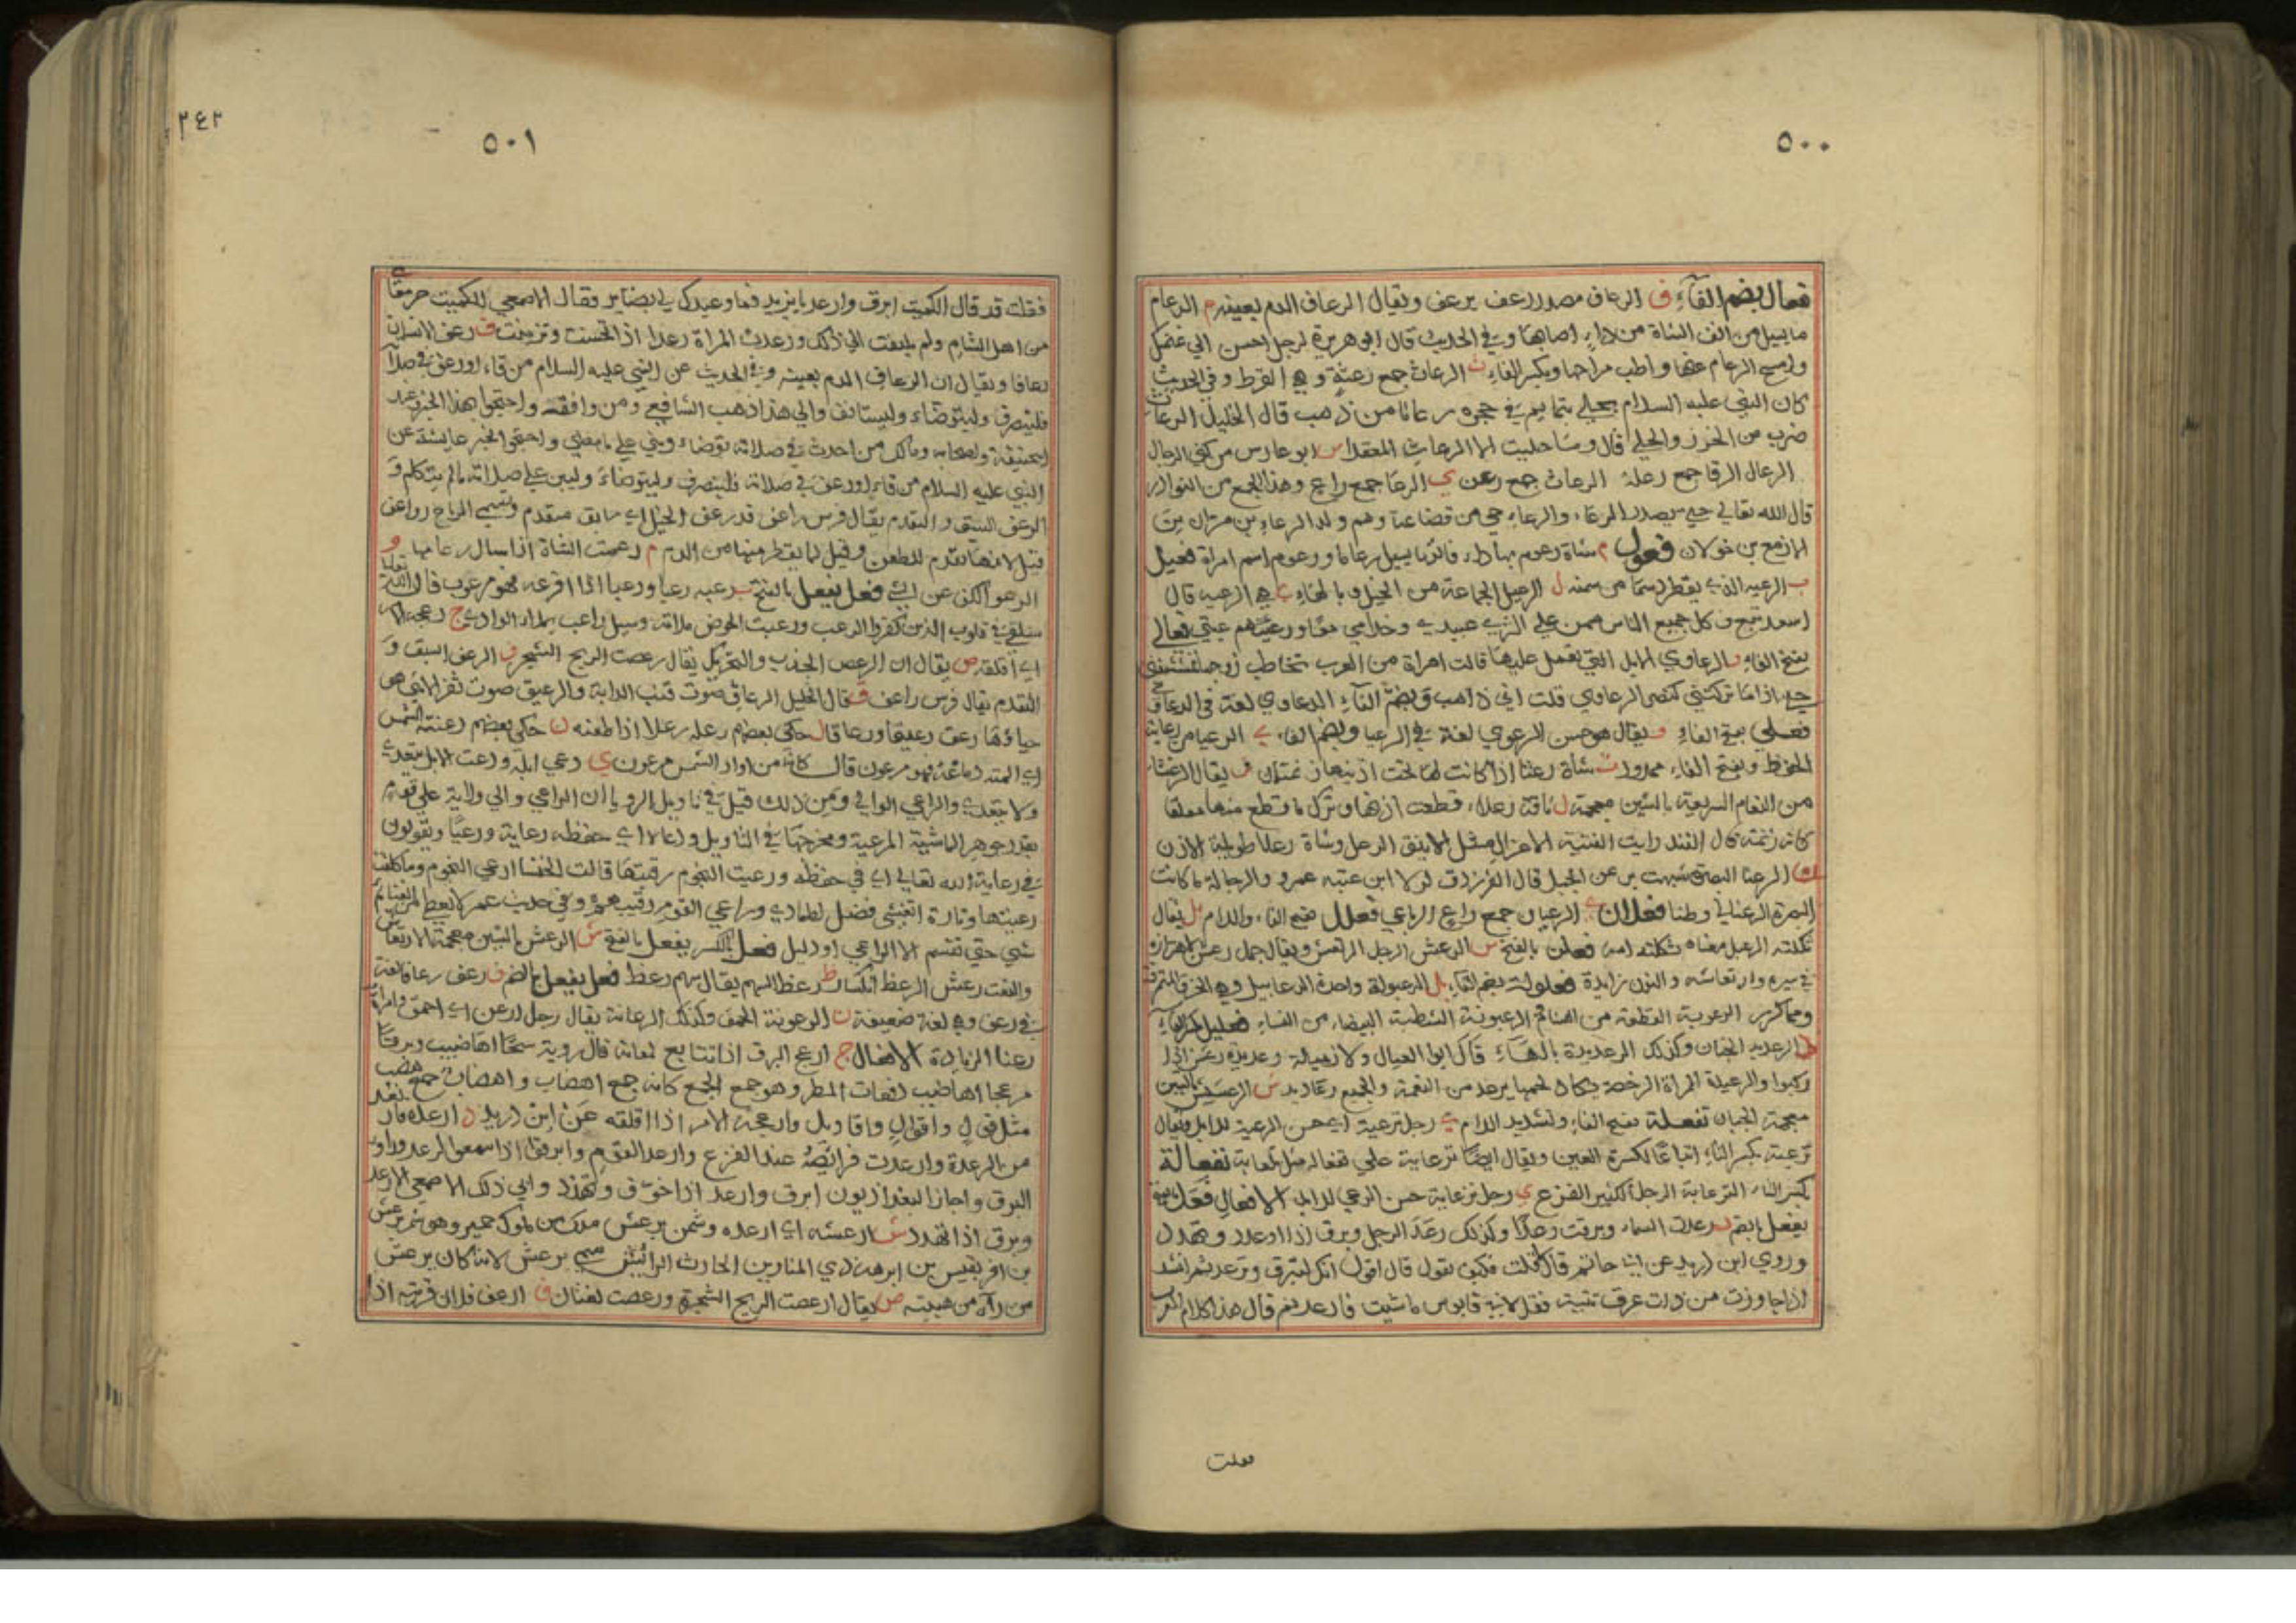 ٥٠٠
فعال بضم الفاء ف الرعاف مصدر رعف يرعف ويقال الرعاف الدم بعينه م الرعام
ما يسيل من انف الشاة من داء اصابها وفي الحديث قال ابو هريرة لرجل احسن الي غنمك
وامسح الرعام عنها واطب مراحها وبكسر الفاء ث الرعاث جمع رعثة وهي القرط وفي الحديث
كان النبي عليه السلام يحلي بتاما في حجره رعاثا من ذهب قال الخليل الرعاث
ضرب من الخرز والحلي قال وما حليت الا الرعاث المعقدا س ابو عارس من كنى الرجال
الرعال الرقا جمع رعلة الرعاث جمع رعن ي الرعا جمع راع وهذا الجمع من النوادر
قال الله تعالي حتي يصدر الرعاء والرعاء حي من قضاعة وهم ولد الرعاء بن مران بن
الازمع بن خولان فعول م شاة رعوم بها داء يسيل رعامها ورعوم اسم امراة فعيل
ب الرعيب الذي يقطر دسما من سمنه ل الرعيل الجماعة من الخيل وبالهاء ي هي الرعيه قال
اسعد تبع وكل جميع الناس ممن علي الثري عبيدي وخدامي معا ورعيتهم عبتي فعالي
بفتح الفاء و الرعاوي الابل التي يعمل عليها قالت امراة من العرب تخاطب زوجها
حتي اذا ما تركتني كنضو الرعاوي قلت اني ذاهب وبضم الفاء الرعاوي لغة في الرعاوي
فعلى بفتح الفاء و يقال هو حسن الرعوي لغة في الرعيا وبضم الفاء ي الرعيا من رعاية
الحفظ وبفتح الفاء ممدود ث شاة رعثا اذا كانت لها تحت اذنيها زنمتان ش يقال الرعشاء
من النعام السريعة بالشين معجمة ل ناقة رعلاء قطعت اذنها وترك ما قطع منها معلقا
كانه زنمة قال الفند رايت الفتية الاعزال مثل الاينق الرعل وشاة رعلا طويلة الاذن
ن الرعنا البصرة شبهت برعن الجبل قال الفرزدق لولا ابن عتبة عمرو والرجا له ما كانت
البصرة الرعنا لي وطنا فعلان ي الرعيان جمع راع الرباعي فعلل بفتح الفاء واللام بل يقال
ثكلته الرعبل معناه ثكلته امه فعلن بالفتح س الرعش الرجل المرتعش ويقال جمل رعشن لاهتزازه
في سيره وارتعاشه والنون زايدة فعلولة بضم الفاء بل الرعبولة واحدة الرعابيل وهي الخرق المتمزقة
ومما كرر الرعبوبة القطعة من السنام الرعبوبة الشطبة البيضاء من النساء فعليل بكسر الفاء
د الرعديد الجبان وكذلك الرعديدة بالهاء قال ابو العيال ولا زميلة رعديدة رعش اذا
ركبوا والرعديدة المراة الرخصة يكاد لحمها يرعد من النعمة والجميع رعاديد ش الرعشيش بالشين
معجمة الجبان تفعلة بفتح الفاء وتشديد اللام ي رجل ترعية اي حسن الرعية للابل ويقال
ترعية بكسر التاء اتباعا لكسرة العين ويقال ايضا ترعاية علي تفعالة مثل تلعابة تفعالة
بكسر التاء الترعابة الرجل الكثير الفزع ي رجل ترعاية حسن الرعي للابل الافعال فعل بالفتح
يفعل بالضم د رعدت السماء وبرقت رعدا وكذلك رعد الرجل وبرق اذا اوعد وتهدد
وروي ابن دريد عن ابي حاتم قال قلت فكيف تقول قال اقول انك لتبرق وترعد ثم انشد
اذا جاوزت من ذات عرق ثنية فقل لابي قابوس ما شيت فارعد ثم قال هذا كلام العرب
فقلت
٥٠١
٢٤٢
فقلت قد قال الكميت ابرق وارعد يا يزيد فما وعيدك لي بضاير فقال الاصمعي الكميت جرمقاني
من اهل الشام ولم يلتفت الي ذلك ورعدت المراة رعدا اذا تحسنت وتزينت ف رعف الانسان
رعافا ويقال ان الرعاف الدم بعينه وفي الحديث عن النبي عليه السلام من قاء او رعف في صلاته
فلينصرف وليتوضاء وليستانف والي هذا ذهب الشافعي ومن وافقه واحتجوا بهذا الخبر وعند
ابي حنيفة واصحابه ومالك من احدث في صلاته توضاء وبني علي ما مضي واحتجوا بخبر عايشة عن
النبي عليه السلام من قاء او رعف في صلاته فلينصرف وليتوضاء وليبن علي صلاته ما لم يتكلم و
الرعف السبق والتقدم يقال فرس راعف قد رعف الخيل اي سابق متقدم وتسمي الرماح رواعف
قيل لانها تقدم للطعن وقيل لما يقطر منها من الدم م رعمت الشاة اذا سال رعامها و
الرعو الكف عن الشي فعل يفعل بالفتح ب رعبه رعبا ورعبا اذا افزعه فهو مرعوب قال الله تعالي
سنلقي في قلوب الذين كفروا الرعب ورعبت الحوض ملاته وسيل راعب يملا الوادي ج رعجه الامر
اي اقلقه ص يقال ان الرعص الجذب والتحريك يقال رعصت الريح الشجر ف الرعف السبق و
التقدم يقال فرس راعف ق قال الخليل الرعاق صوت قنب الدابة والرعيق صوت ثفر الانثي هو
حياؤها رعق رعيقا ورعاقا ل حكى بعضهم رعله رعلا اذا طعنه ن حكى بعضهم رعنته الشمس
اي المت دماغه فهو مرعون قال كانه من اوار الشمس مرعون ي رعي ابله ورعت الابل يتعدي
ولا يتعدي والراعي الوالي ومن ذلك قيل في تاويل الرويا ان الراعي والي ولاية علي قوم
بقدر جوهر الماشية المرعية ومخرجها في التاويل ورعاه اي حفظه رعاية ورعيا ويقولون
في رعاية الله تعالي اي في حفظه ورعيت النجوم رقبتها قالت الخنسا ارعي النجوم وما كلفت
رعيتها وتارة اتغشى فضل اطماري وراعي القوم رقيبهم وفي حديث عمر لا يعطي من الغنائم
شي حتي تقسم الا لراعي او دليل فعل بالكسر يفعل بالفتح ش الرعش بالشين معجمة الارتعاش
والنعت رعش الرعظ انكسار رعظ السهم يقال سهم رعظ فعل يفعل بالضم ف رعف رعافا لغة
في رعف وهي لغة ضعيفة ن الرعونة الحمق وكذلك الرعانة يقال رجل ارعن اي احمق وامراة
رعنا الزيادة الافعال ج ارعج البرق اذا تتابع لمعانه قال روبة سحا اهاضيب وبرقا
مرعجا اهاضيب دفعات المطر وهو جمع الجمع كانه جمع اهضاب واهضاب جمع هضب
مثل قول واقوال واقاويل وارعجه الامر اذا اقلقه عن ابن دريد د ارعده فارتعد
من الرعدة وارعدت فرايصه عند الفزع وارعد القوم وابرقوا اذا سمعوا الرعد وراوا
البرق واجاز البغداذيون ابرق وارعد اذا خوف وتهدد وابي ذلك الاصمعي الا رعد
وبرق اذا تهدد ش ارعشه اي ارعده وشمر يرعش ملك من ملوك حمير وهو شمر يرعش
بن افريقيس بن ابرهة ذي المنار بن الحارث الرائش سمي يرعش لانه كان يرعش
من رآه من هيبته ص يقال ارعصت الريح الشجرة ورعصت لغتان ف ارعف فلان قربته اذا